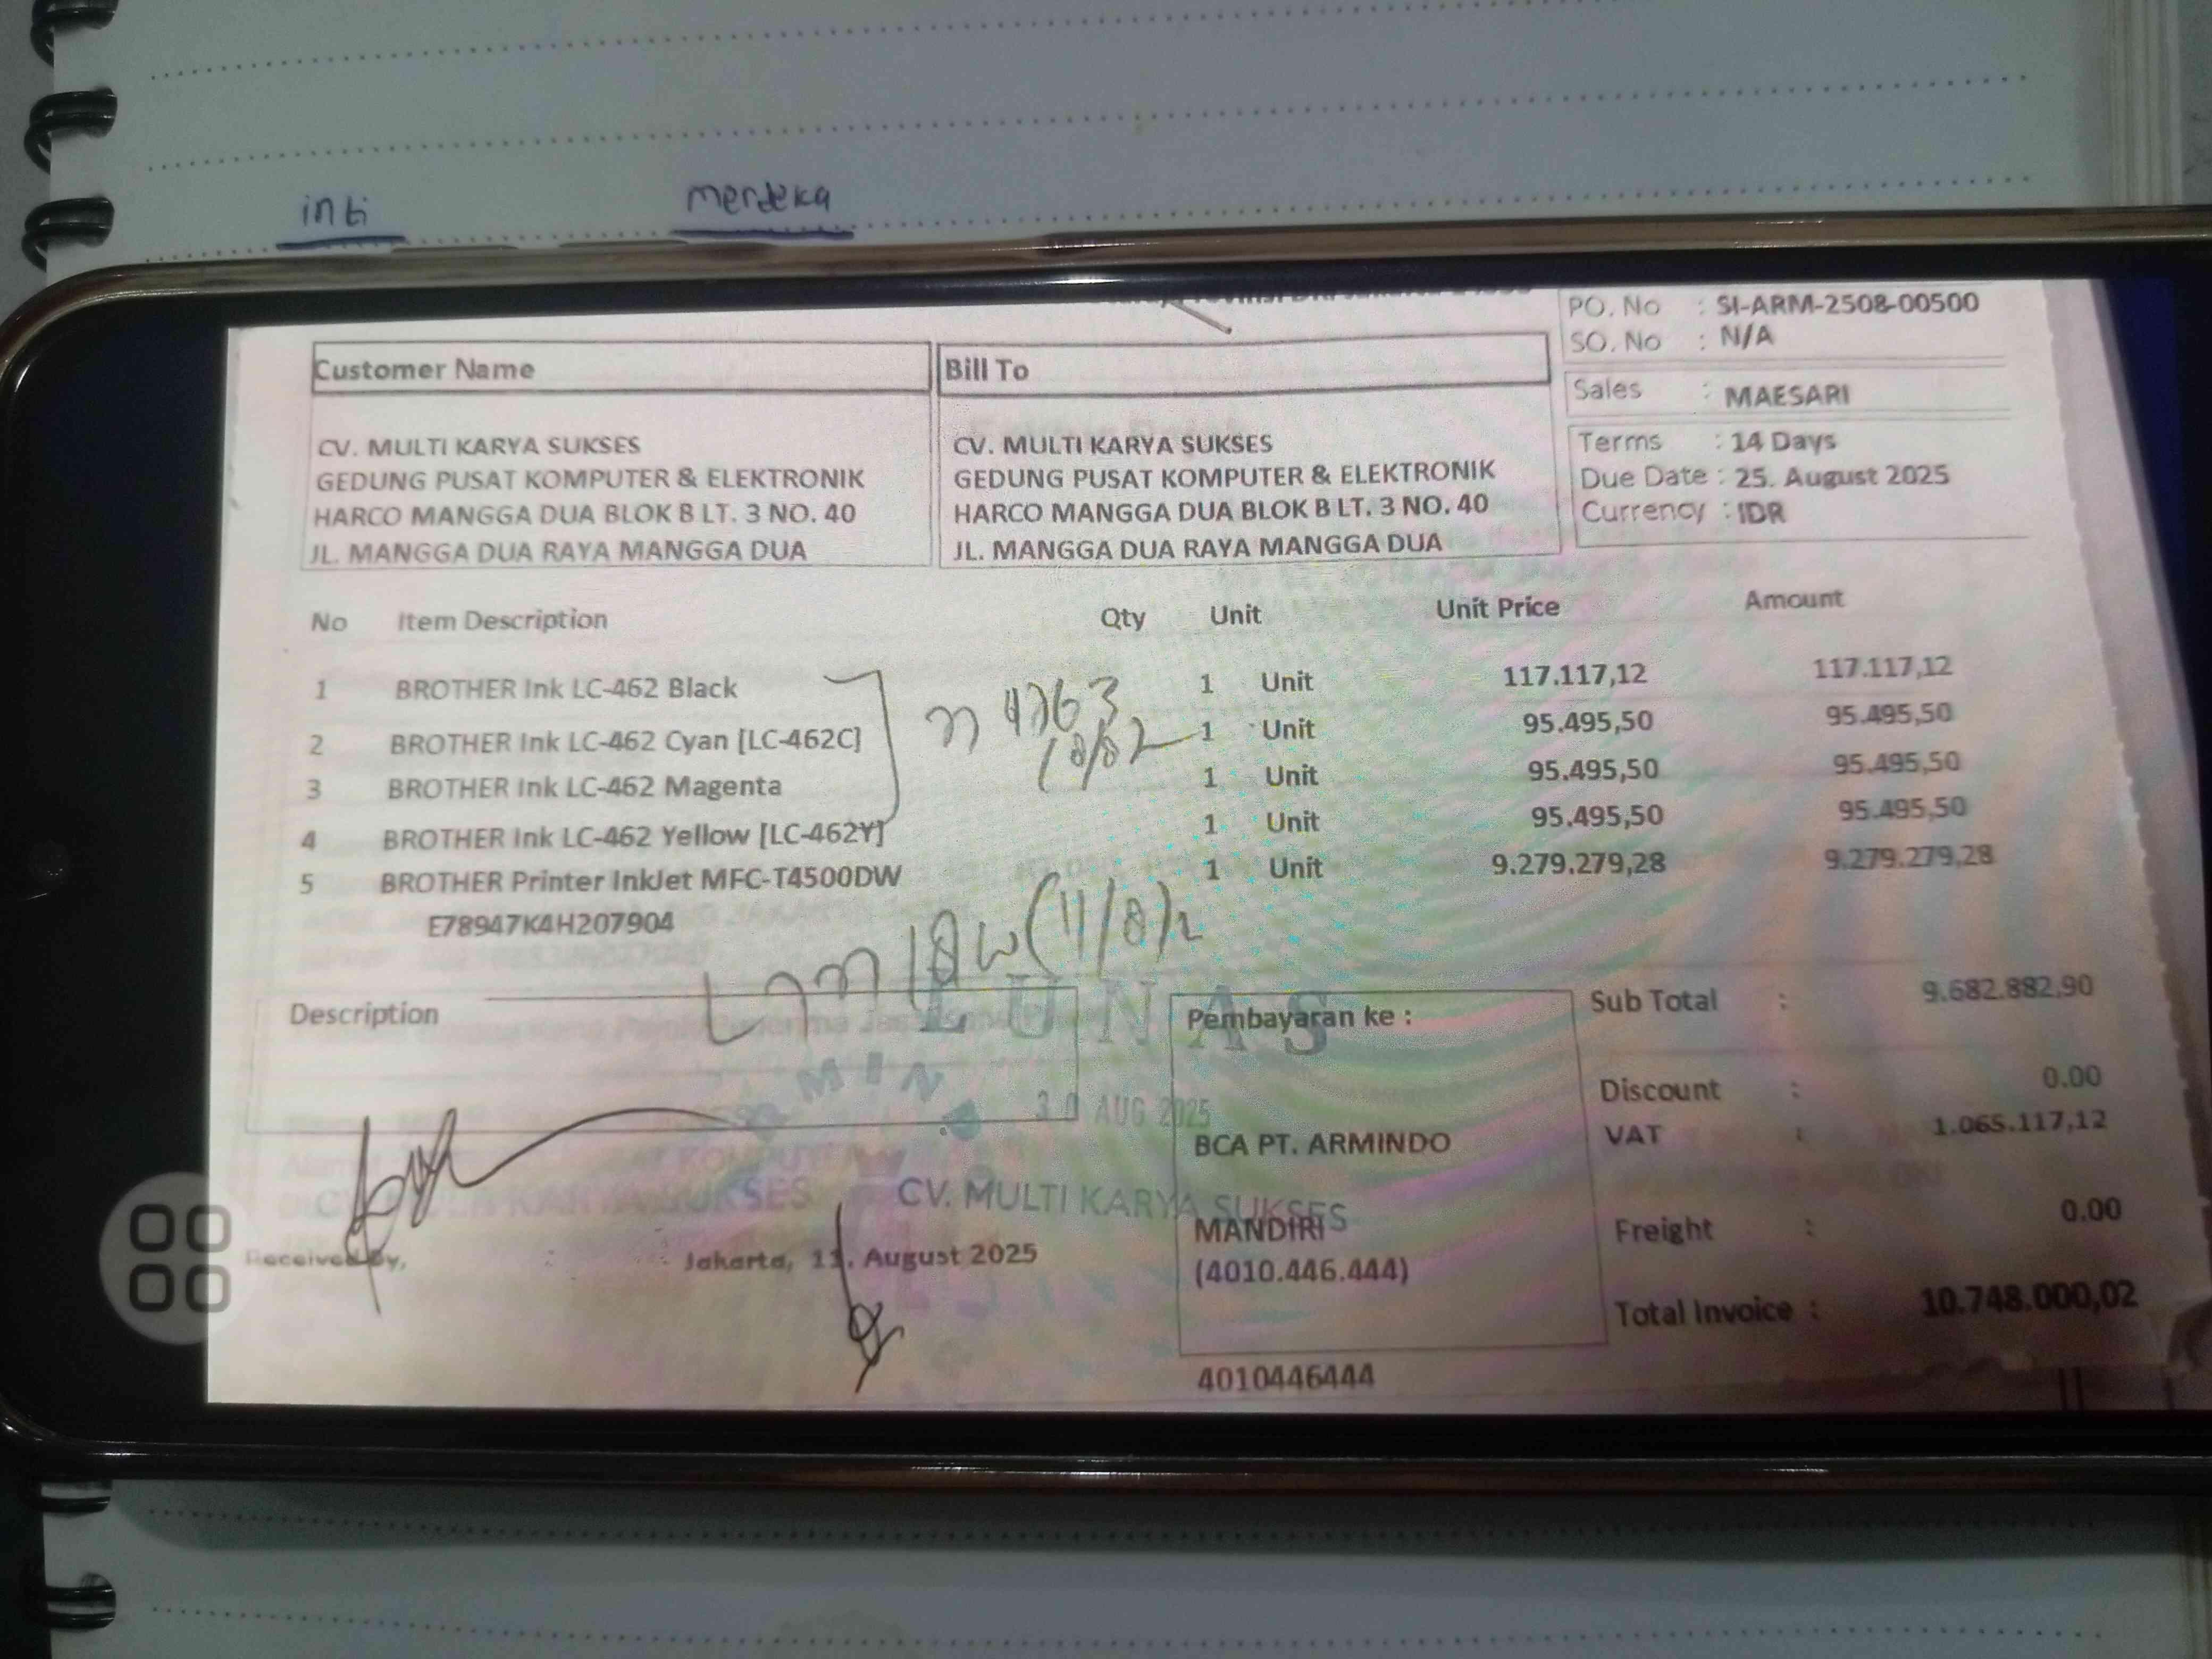 inti merdeka
PO. No : SI-ARM-2508-00500
SO. No : N/A
Customer Name
Bill To
Sales : MAESARI
CV. MULTI KARYA SUKSES
GEDUNG PUSAT KOMPUTER & ELEKTRONIK
HARCO MANGGA DUA BLOK B LT. 3 NO. 40
JL. MANGGA DUA RAYA MANGGA DUA
CV. MULTI KARYA SUKSES
GEDUNG PUSAT KOMPUTER & ELEKTRONIK
HARCO MANGGA DUA BLOK B LT. 3 NO. 40
JL. MANGGA DUA RAYA MANGGA DUA
Terms : 14 Days
Due Date : 25. August 2025
Currency : IDR
No Item Description Qty Unit Unit Price Amount
1 BROTHER Ink LC-462 Black 1 Unit 117.117,12 117.117,12
2 BROTHER Ink LC-462 Cyan [LC-462C] 1 Unit 95.495,50 95.495,50
3 BROTHER Ink LC-462 Magenta 1 Unit 95.495,50 95.495,50
4 BROTHER Ink LC-462 Yellow [LC-462Y] 1 Unit 95.495,50 95.495,50
5 BROTHER Printer InkJet MFC-T4500DW 1 Unit 9.279.279,28 9.279.279,28
E78947K4H207904
Description
LUNAS
30 AUG 2025
CV. MULTI KARYA SUKSES
Received By,
Jakarta, 11. August 2025
CV. MULTI KARYA SUKSES
Pembayaran ke :
BCA PT. ARMINDO
MANDIRI
(4010.446.444)
4010446444
Sub Total : 9.682.882,90
Discount : 0.00
VAT : 1.065.117,12
Freight : 0.00
Total Invoice : 10.748.000,02